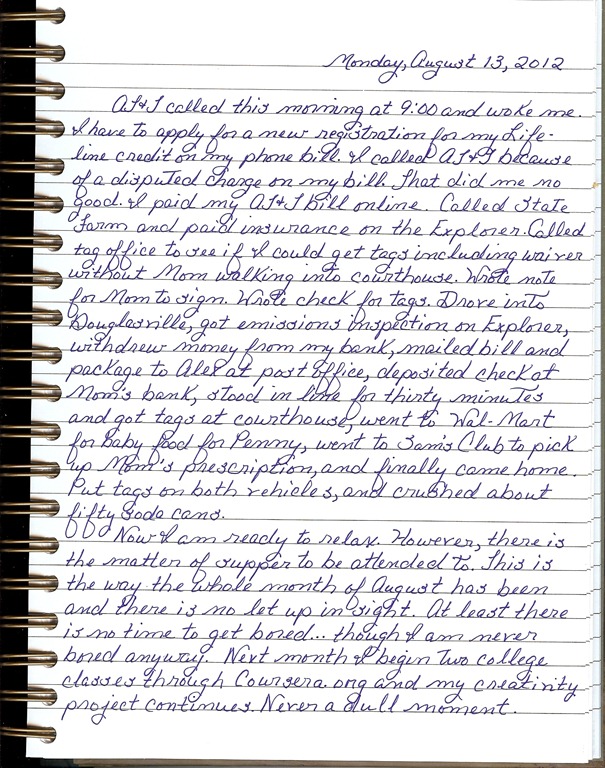 Monday, August 13, 2012
AT&T called this morning at 9:00 and woke me.
I have to apply for a new registration for my Life-
line credit on my phone bill. I called AT&T because
of a disputed charge on my bill. That did me no
good. I paid my AT&T bill online. Called State
Farm and paid insurance on the Explorer. Called
tag office to see if I could get tags including waiver
without Mom walking into courthouse. Wrote note
for Mom to sign. Wrote check for tags. Drove into
Douglasville, got emissions inspection on Explorer,
withdrew money from my bank, mailed bill and
package to Alex at post office, deposited check at
Mom's bank, stood in line for thirty minutes
and got tags at courthouse, went to Wal-Mart
for baby food for Penny, went to Sam's Club to pick
up Mom's prescription, and finally came home.
Put tags on both vehicles, and crushed about
fifty soda cans.
Now I am ready to relax. However, there is
the matter of supper to be attended to. This is
the way the whole month of August has been
and there is no let up in sight. At least there
is no time to get bored... though I am never
bored anyway. Next month I begin two college
classes through Coursera.org and my creativity
project continues. Never a dull moment.